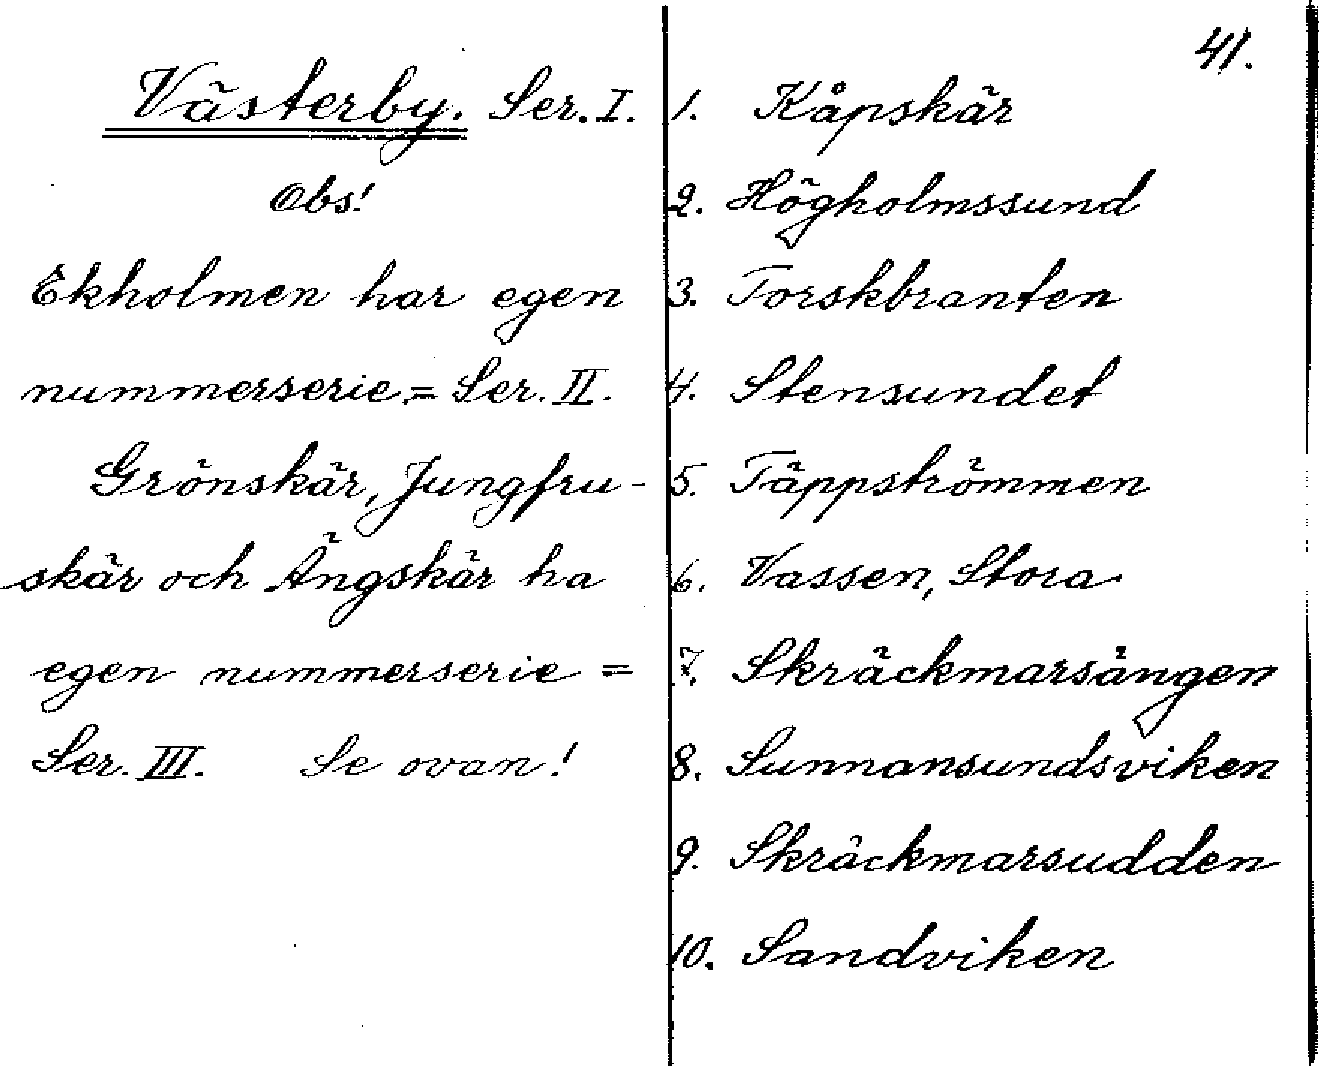 41.
Västerby. Ser. I.
Obs!
Ekholmen har egen
nummerserie = Ser. II.
Grönskär, Jungfru-
skär och Ängskär ha
egen nummerserie =
Ser. III. Se ovan!
1. Kåpskär
2. Högholmssund
3. Torskbranten
4. Stensundet
5. Täppströmmen
6. Vassen, Stora
7. Skräckmarsängen
8. Sunnansundsviken
9. Skräckmarsudden
10. Sandviken